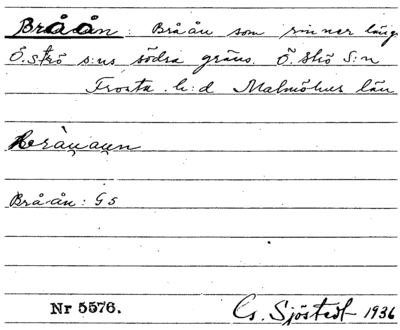 Bråån: Bråån som rinner läng
Ö. Strö s:ns södra gräns. Ö. Strö S:n
Frosta h:d Malmöhus län
Bråån: GS
Nr 5576. G. Sjöstedt 1936